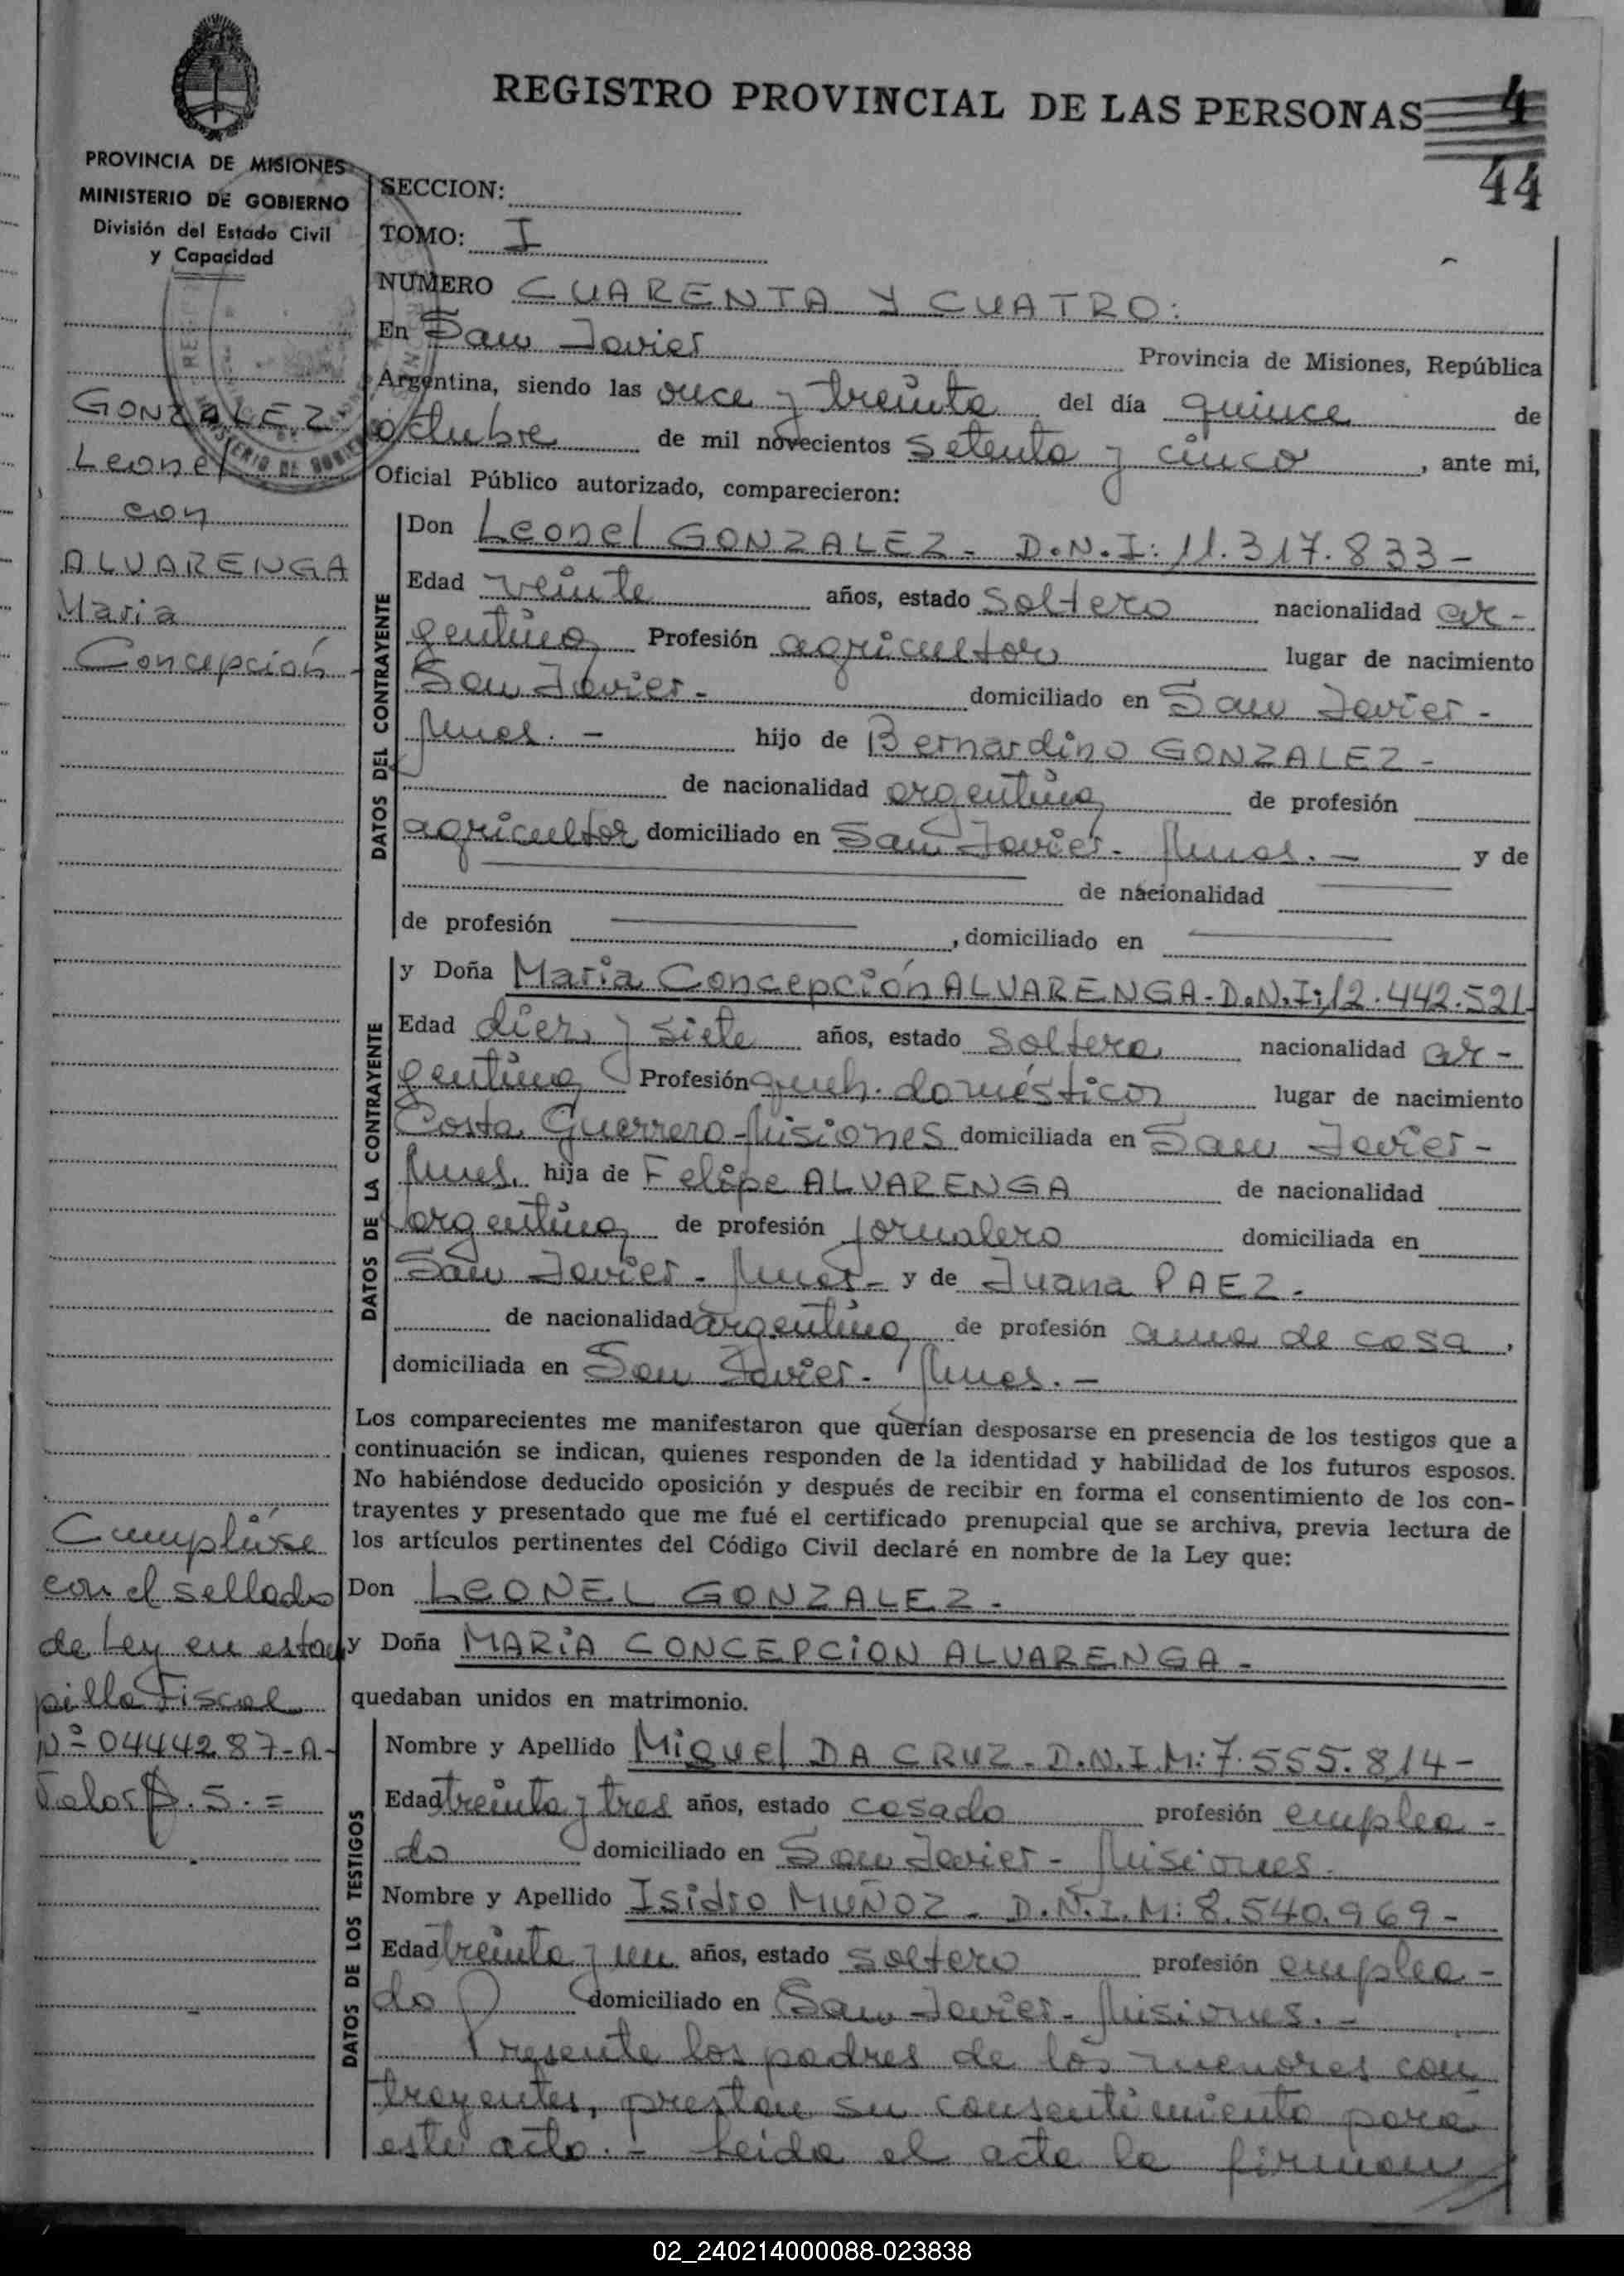 REGISTRO PROVINCIAL DE LAS PERSONAS 4
44
PROVINCIA DE MISIONES
MINISTERIO DE GOBIERNO
División del Estado Civil
y Capacidad
SECCION:
TOMO: I
NUMERO CUARENTA Y CUATRO:
En San Javier Provincia de Misiones, República
Argentina, siendo las once y treinta del día quince de
octubre de mil novecientos setenta y cinco, ante mi,
Oficial Público autorizado, comparecieron:
GONZALEZ
Leonel
con
ALVARENGA
Maria
Concepción
DATOS DEL CONTRAYENTE
Don Leonel GONZALEZ - D.N.I: 11.317.833 -
Edad veinte años, estado soltero nacionalidad ar-
gentina Profesión agricultor lugar de nacimiento
San Javier - domiciliado en San Javier -
Mnes. - hijo de Bernardino GONZALEZ -
de nacionalidad argentina de profesión
agricultor domiciliado en San Javier - Mnes. - y de
de nacionalidad
de profesión , domiciliado en
DATOS DE LA CONTRAYENTE
y Doña Maria Concepción ALVARENGA - D.N.I: 12.442.521 -
Edad diez y siete años, estado soltera nacionalidad ar-
gentina Profesión queh. domésticos lugar de nacimiento
Costa Guerrero - Misiones domiciliada en San Javier -
Mnes. hija de Felipe ALVARENGA de nacionalidad
argentina de profesión jornalero domiciliada en
San Javier - Mnes - y de Juana PAEZ -
de nacionalidad argentina de profesión ama de casa,
domiciliada en San Javier - Mnes. -
Los comparecientes me manifestaron que querían desposarse en presencia de los testigos que a
continuación se indican, quienes responden de la identidad y habilidad de los futuros esposos.
No habiéndose deducido oposición y después de recibir en forma el consentimiento de los con-
trayentes y presentado que me fué el certificado prenupcial que se archiva, previa lectura de
los artículos pertinentes del Código Civil declaré en nombre de la Ley que:
Don LEONEL GONZALEZ -
y Doña MARIA CONCEPCION ALVARENGA -
quedaban unidos en matrimonio.
Cumplióse
con el sellado
de Ley en estam
pilla Fiscal
Nº 0444287-A-
Valor $. 5. =
DATOS DE LOS TESTIGOS
Nombre y Apellido Miguel DA CRUZ - D.N.I.M: 7.555.814 -
Edad treinta y tres años, estado casado profesión emplea-
do domiciliado en San Javier - Misiones.
Nombre y Apellido Isidro MUÑOZ - D.N.I.M: 8.540.969 -
Edad treinta y un años, estado soltero profesión emplea-
do domiciliado en San Javier - Misiones. -
Presente los padres de los menores con
trayentes, prestan su consentimiento para
este acto. - Leida el acta la firman
02_240214000088-023838